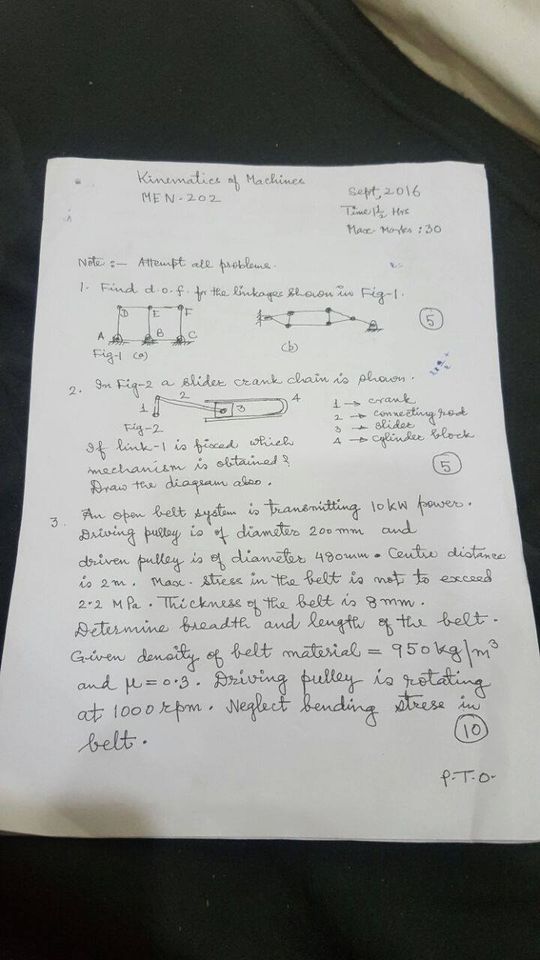 Kinematics of Machines
MEN-202
Sept, 2016
Time 1½ Hrs
Max. Marks : 30
Note :- Attempt all problems.
1. Find d.o.f. for the linkages shown in Fig-1.
D E F
A B C
Fig-1 (a)
(b)
5
2. In Fig-2 a slider crank chain is shown.
1 2 3 4
Fig-2
1 → crank
2 → connecting rod
3 → slider
4 → cylinder block
If link-1 is fixed which
mechanism is obtained?
Draw the diagram also.
5
3. An open belt system is transmitting 10 kW power.
Driving pulley is of diameter 200 mm and
driven pulley is of diameter 480 mm. Centre distance
is 2m. Max. stress in the belt is not to exceed
2.2 MPa. Thickness of the belt is 8 mm.
Determine breadth and length of the belt.
Given density of belt material = 950 kg/m³
and μ = 0.3. Driving pulley is rotating
at 1000 rpm. Neglect bending stress in
belt.
10
P.T.O-